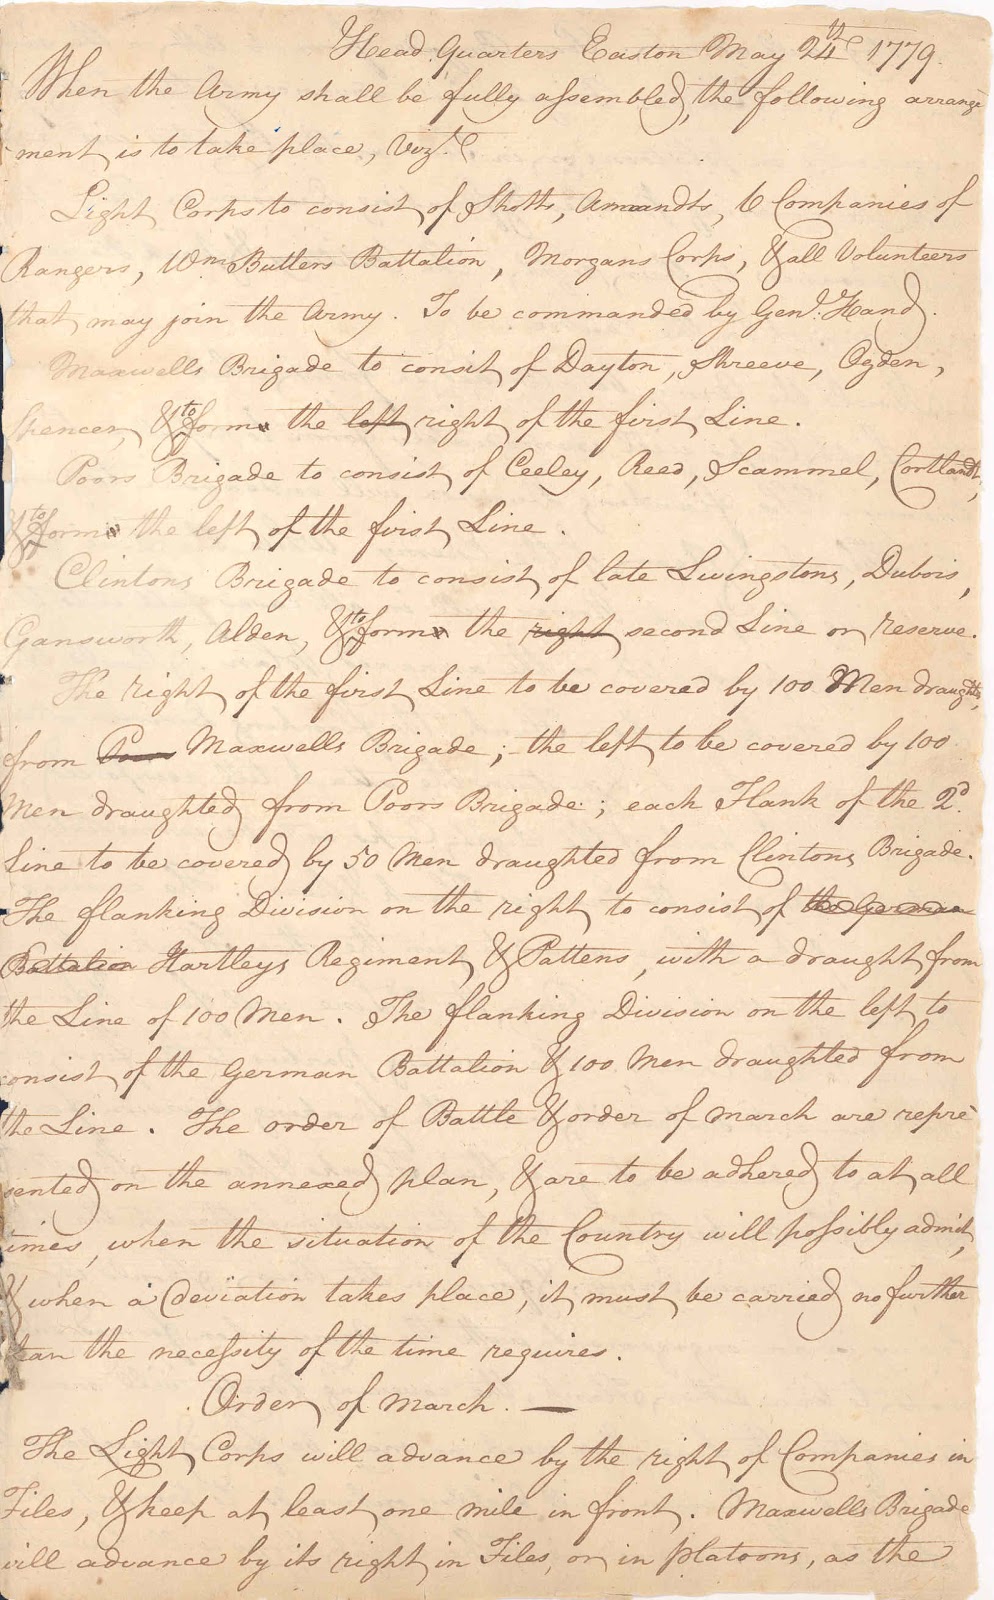 Head Quarters Easton May 24th 1779.
When the Army shall be fully assembled, the following arrange
ment is to take place, Vizt.
Light Corps to consist of Shotts, Amandts, 6 Companies of
Rangers, Wm Butlers Battalion, Morgans Corps, & all Volunteers
that may join the Army. To be commanded by Genl. Hand.
Maxwells Brigade to consit of Dayton, Shreeve, Ogden,
Spencer, & to form the left right of the first Line.
Poors Brigade to consist of Ceeley, Reed, Scammel, Cortlandt,
& to form the left of the first Line.
Clintons Brigade to consist of late Livingstons, Dubois,
Gansworth, Alden, & to form the right second Line or reserve.
The right of the first Line to be covered by 100 Men draughted
from Poors Maxwells Brigade; the left to be covered by 100
Men draughted from Poors Brigade; each Flank of the 2d.
Line to be covered by 50 Men draughted from Clintons Brigade.
The flanking Division on the right to consist of the German
Battalion Hartleys Regiment & Pattens, with a draught from
the Line of 100 Men. The flanking Division on the left to
consist of the German Battalion & 100 Men draughted from
the Line. The order of Battle & order of march are repre
sented on the annexed plan, & are to be adhered to at all
times, when the situation of the Country will possibly admit,
& when a deviation takes place, it must be carried no further
than the necessity of the time requires.
Order of march. —
The Light Corps will advance by the right of Companies in
Files, & keep at least one mile in front. Maxwells Brigade
will advance by its right in Files, or in platoons, as the